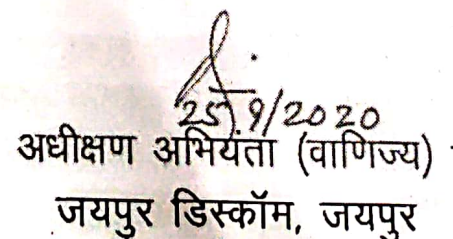 25/9/2020
अधीक्षण अभियंता (वाणिज्य)
जयपुर डिस्कॉम, जयपुर